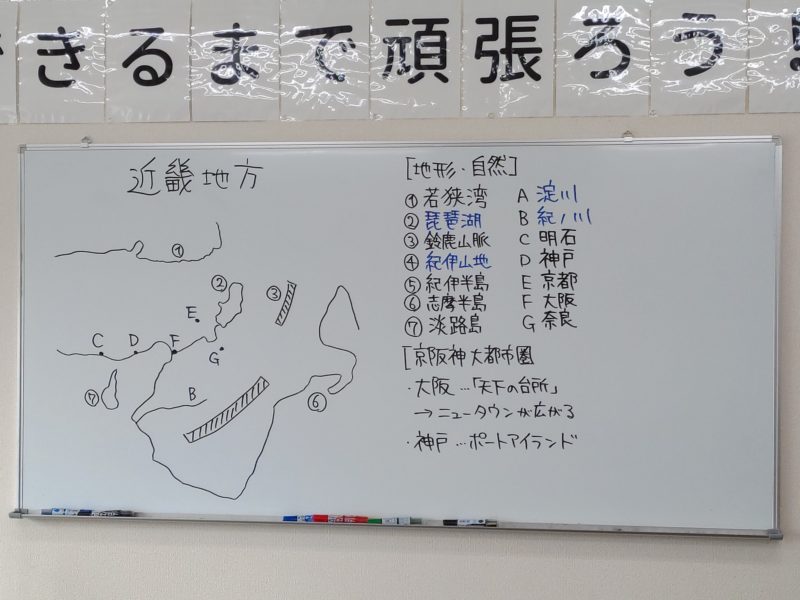 きるまで頑張ろう!
近畿地方
①
②
③
E
C
D
F
G
⑦
B
⑥
[地形・自然]
①若狭湾 A 淀川
②琵琶湖 B 紀ノ川
③鈴鹿山脈 C 明石
④紀伊山地 D 神戸
⑤紀伊半島 E 京都
⑥志摩半島 F 大阪
⑦淡路島 G 奈良
[京阪神大都市圏
・大阪…「天下の台所」
→ニュータウンが広がる
・神戸…ポートアイランド